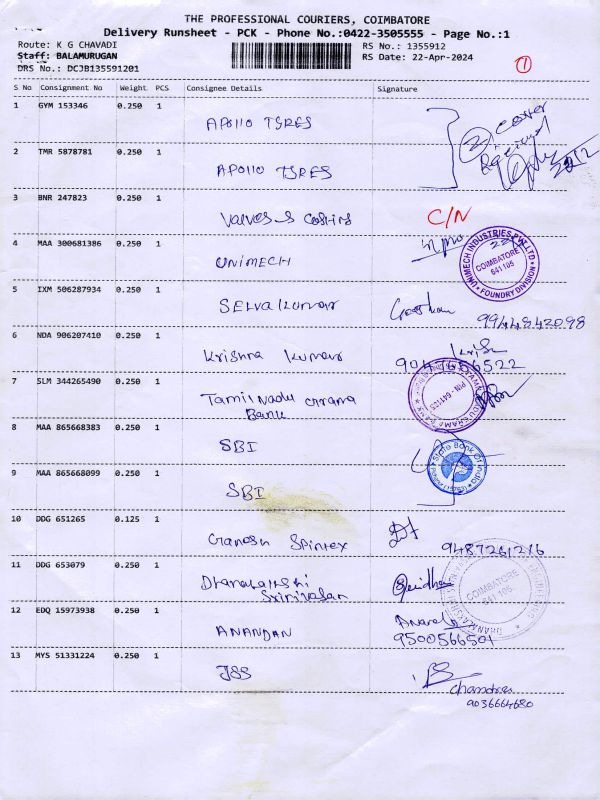 THE PROFESSIONAL COURIERS, COIMBATORE
Delivery Runsheet - PCK - Phone No.:0422-3505555 - Page No.:1
Route: K G CHAVADI
RS No.: 1355912
Staff: BALAMURUGAN
RS Date: 22-Apr-2024
DRS No.: DCJB135591201
1
S No Consignment No Weight PCS Consignee Details Signature
1 GYM 153346 0.250 1
APOLLO TYRES
2 TMR 5878781 0.250 1
APOLLO TYRES
3 BNR 247823 0.250 1
C/N
4 MAA 300681386 0.250 1
UNIMECH
UNIMECH INDUSTRIES PVT LTD
COIMBATORE
641 105
FOUNDRY DIVISION
5 IXM 506287934 0.250 1
SELVAKUMAR
9944842098
6 NDA 906207410 0.250 1
Krishna Kumar
7 SLM 344265490 0.250 1
Tamil Nadu Grama
Bank
PIN - 641105
8 MAA 865668383 0.250 1
SBI
State Bank Of India
9 MAA 865668099 0.250 1
SBI
10 DDG 651265 0.125 1
Ganesh Spintex
9487261216
11 DDG 653079 0.250 1
Srinivasan
COIMBATORE
641 105
12 EDQ 15973938 0.250 1
ANANDAN
9500566501
13 MYS 51331224 0.250 1
JSS
9036664680